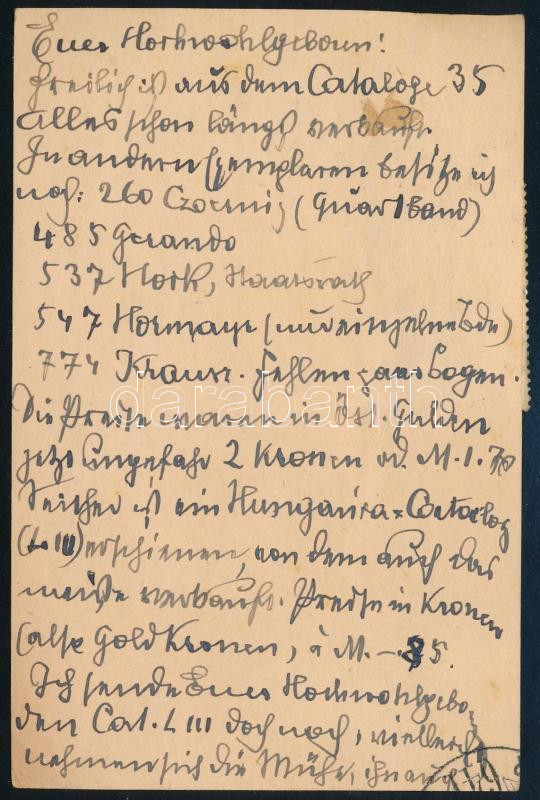 Euer Hochwohlgeboren!
freilich ist aus dem Cataloge 35
alles schon längst verkauft.
In andern Exemplaren besitze ich
noch: 260 Czoernig (Quartband)
485 Gerando
537 Hock, Staatsrath
547 Hormayr (nur einzelne Bde)
774 Kraus. fehlen paar bogen.
Die Preise waren in öst. Gulden
jetzt ungefähr 2 Kronen od. M. 1.70
Seither ist ein Hungarica-Catalog
(L III) erschienen, von dem auch das
meiste verkauft. Preise in Kronen
(alse Goldkronen, à M. -.85.
Ich sende Euer Hochwohlgebo
den Cat. L III doch noch, vielleich
nehmen sich die Mühe, ihn auch
darabanth